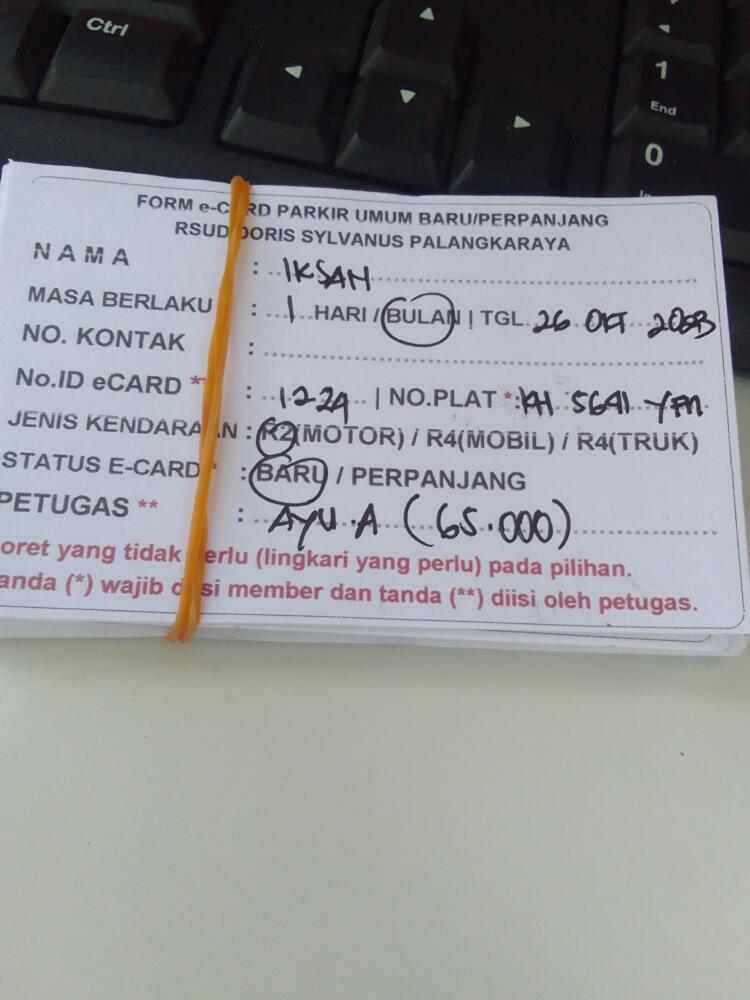 Ctrl
1
End
0
FORM e-CARD PARKIR UMUM BARU/PERPANJANG
RSUD DORIS SYLVANUS PALANGKARAYA
NAMA : IKSAN
MASA BERLAKU : 1 HARI / BULAN | TGL 26 OKT 2023
NO. KONTAK :
No.ID eCARD ** : 1224 | NO.PLAT *: KH 5641 YM
JENIS KENDARAAN : R2(MOTOR) / R4(MOBIL) / R4(TRUK)
STATUS E-CARD * : BARU / PERPANJANG
PETUGAS ** : AYU.A (65.000)
oret yang tidak perlu (lingkari yang perlu) pada pilihan.
anda (*) wajib diisi member dan tanda (**) diisi oleh petugas.